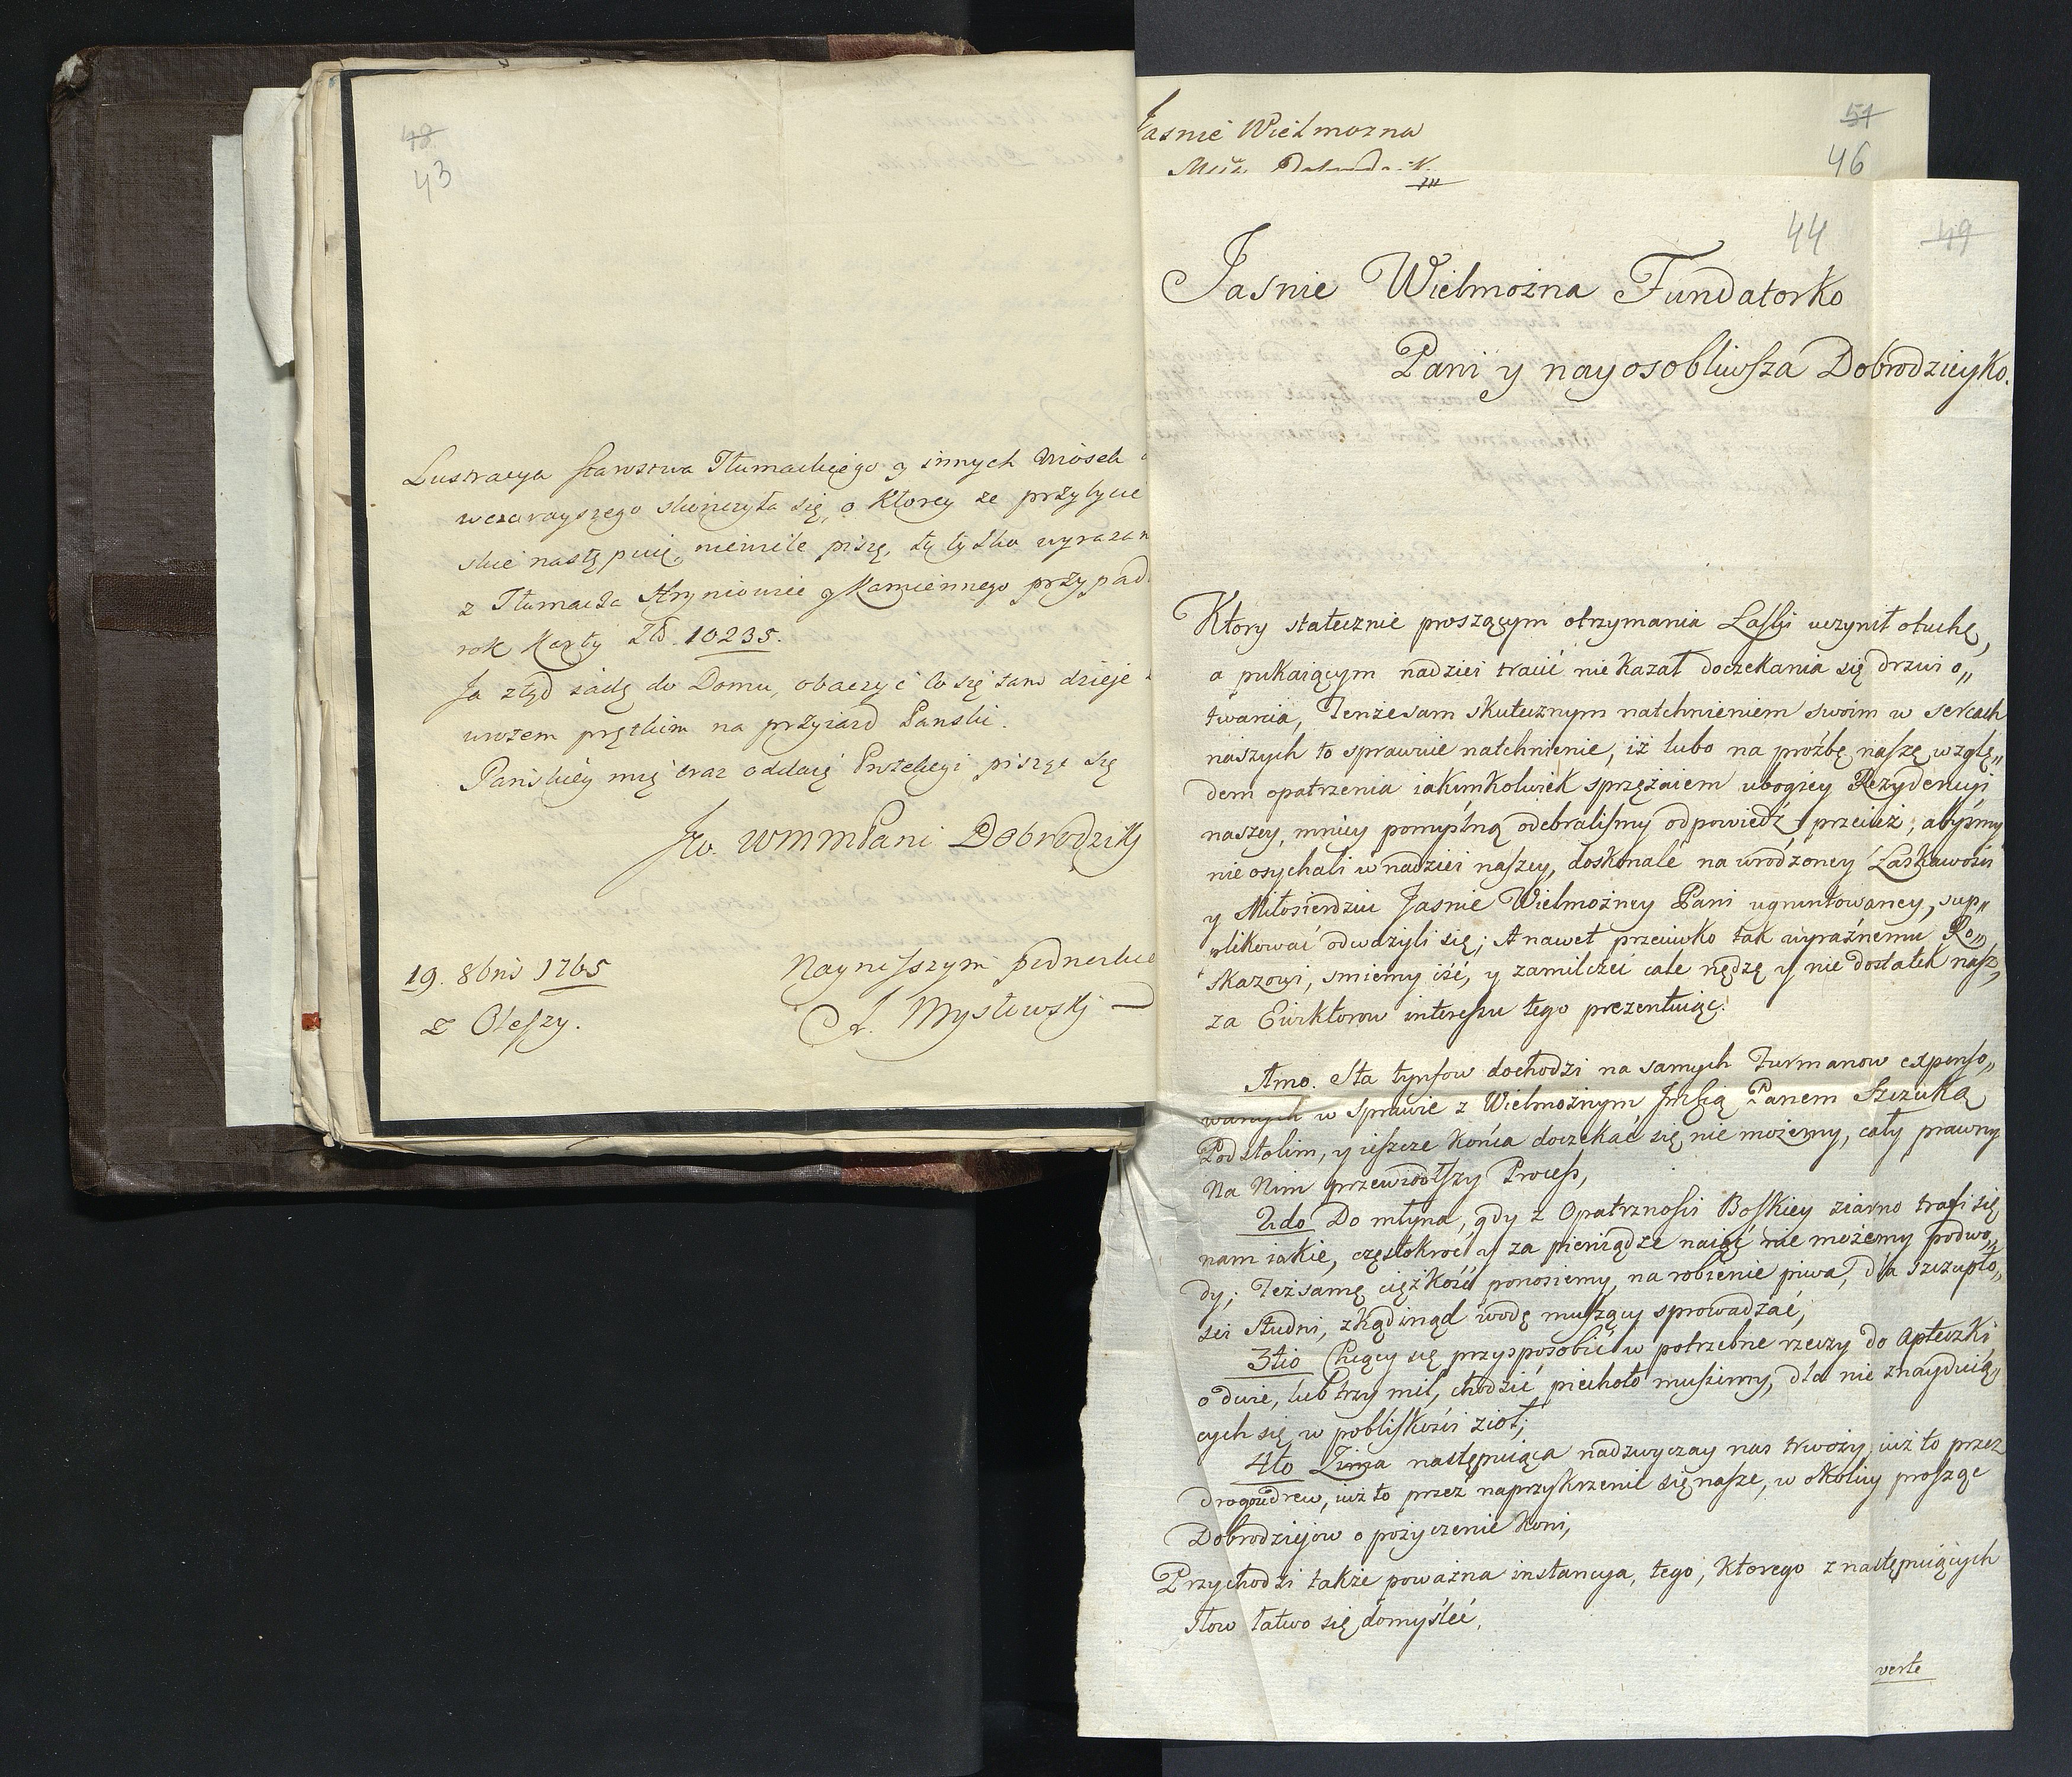 48
43
Lustracya starostwa Tłumackiego y innych Wiosek
wczorayszego skończyła się, o ktorey ze przybycie
skie następuię, niewiele piszę, tę tylko wyrażam
z Tłumacza Hryniowie y Kamiennego przypad
rok Karty Zł. 10235.
Ja ztąd iadę do Domu, obaczyć co się tam dzieje
wozem prętkim na przyiazd Panski.
Panskiey mię oraz oddaię Protekcyi piszęc się
Jw. WMMPani Dobrodziki
19. 8bris 1765
z Oleszy.
Nayniższym podnożkie
A. Mysłowskj
Jasnie Wielmozna
51
46
44
49
Jasnie Wielmożna Fundatorko
Pani y nayosobliwsza Dobrodzieyko.
Ktory statecznie proszącym otrzymania Łaski uczynił otuchę,
a pukaiącym nadziei tracić nie kazał doczekania się drzwi o„
twarcia, Tenze sam skutecznym natchnieniem swoim w sercach
naszych to sprawuie natchnienie, iż lubo na proźbę naszę wzglę„
dem opatrzenia iakimkolwiek sprzężaiem ubogiey Rezydencyi
naszey, mniey pomyslną odebralismy odpowiedź, przecież, abysmy
nie osychali w nadziei naszey, doskonale na wrodzoney Łaskawosci
y Miłosierdziu Jasnie Wielmożney Pani ugruntowaney, sup„
plikować odważyli się; A nawet przeciwko tak wyraźnemu Ro„
skazowi, smiemy iść, y zamilczeć całe nędzę y niedostatek nasz,
za Ewiktorow interessu tego prezentuiąc:
Amo. Sta tynfow dochodzi na samych Furmanow expenso„
wanych w sprawie z Wielmożnym Jmścią Panem Szczuką
Podstolim, y ieszcze końca doczekać się nie możemy, cały prawny
Na Nim przewiodłszy Process,
2do Do młyna, gdy z Opatrznosci Boskiey ziarno trafi się
nam iakie, częstokroć y za pieniądze naiąć nie możemy podwo„
dy; Też samę ciężkość ponosiemy na robienie piwa, dla szczupło„
sci studni, zkądinąd wodę muszący sprowadzać,
3tio Chcący się przysposobić w potrzebne rzeczy do Apteczki
o dwie, lub trzy mil, chodzić piechoto musimy, dla nie znayduią„
cych się w pobliskości zioł;
4to Zima następuiąca nadzwyczay nas trwoży iuż to przez
drogo drew, iuż to przez naprzykrzenie się nasze, w okolicy proszęc
Dobrodziejow o pożyczenie koni,
Przychodzi także poważna instancya, tego, ktorego z następuiących
słow łatwo się domyśleć,
verte